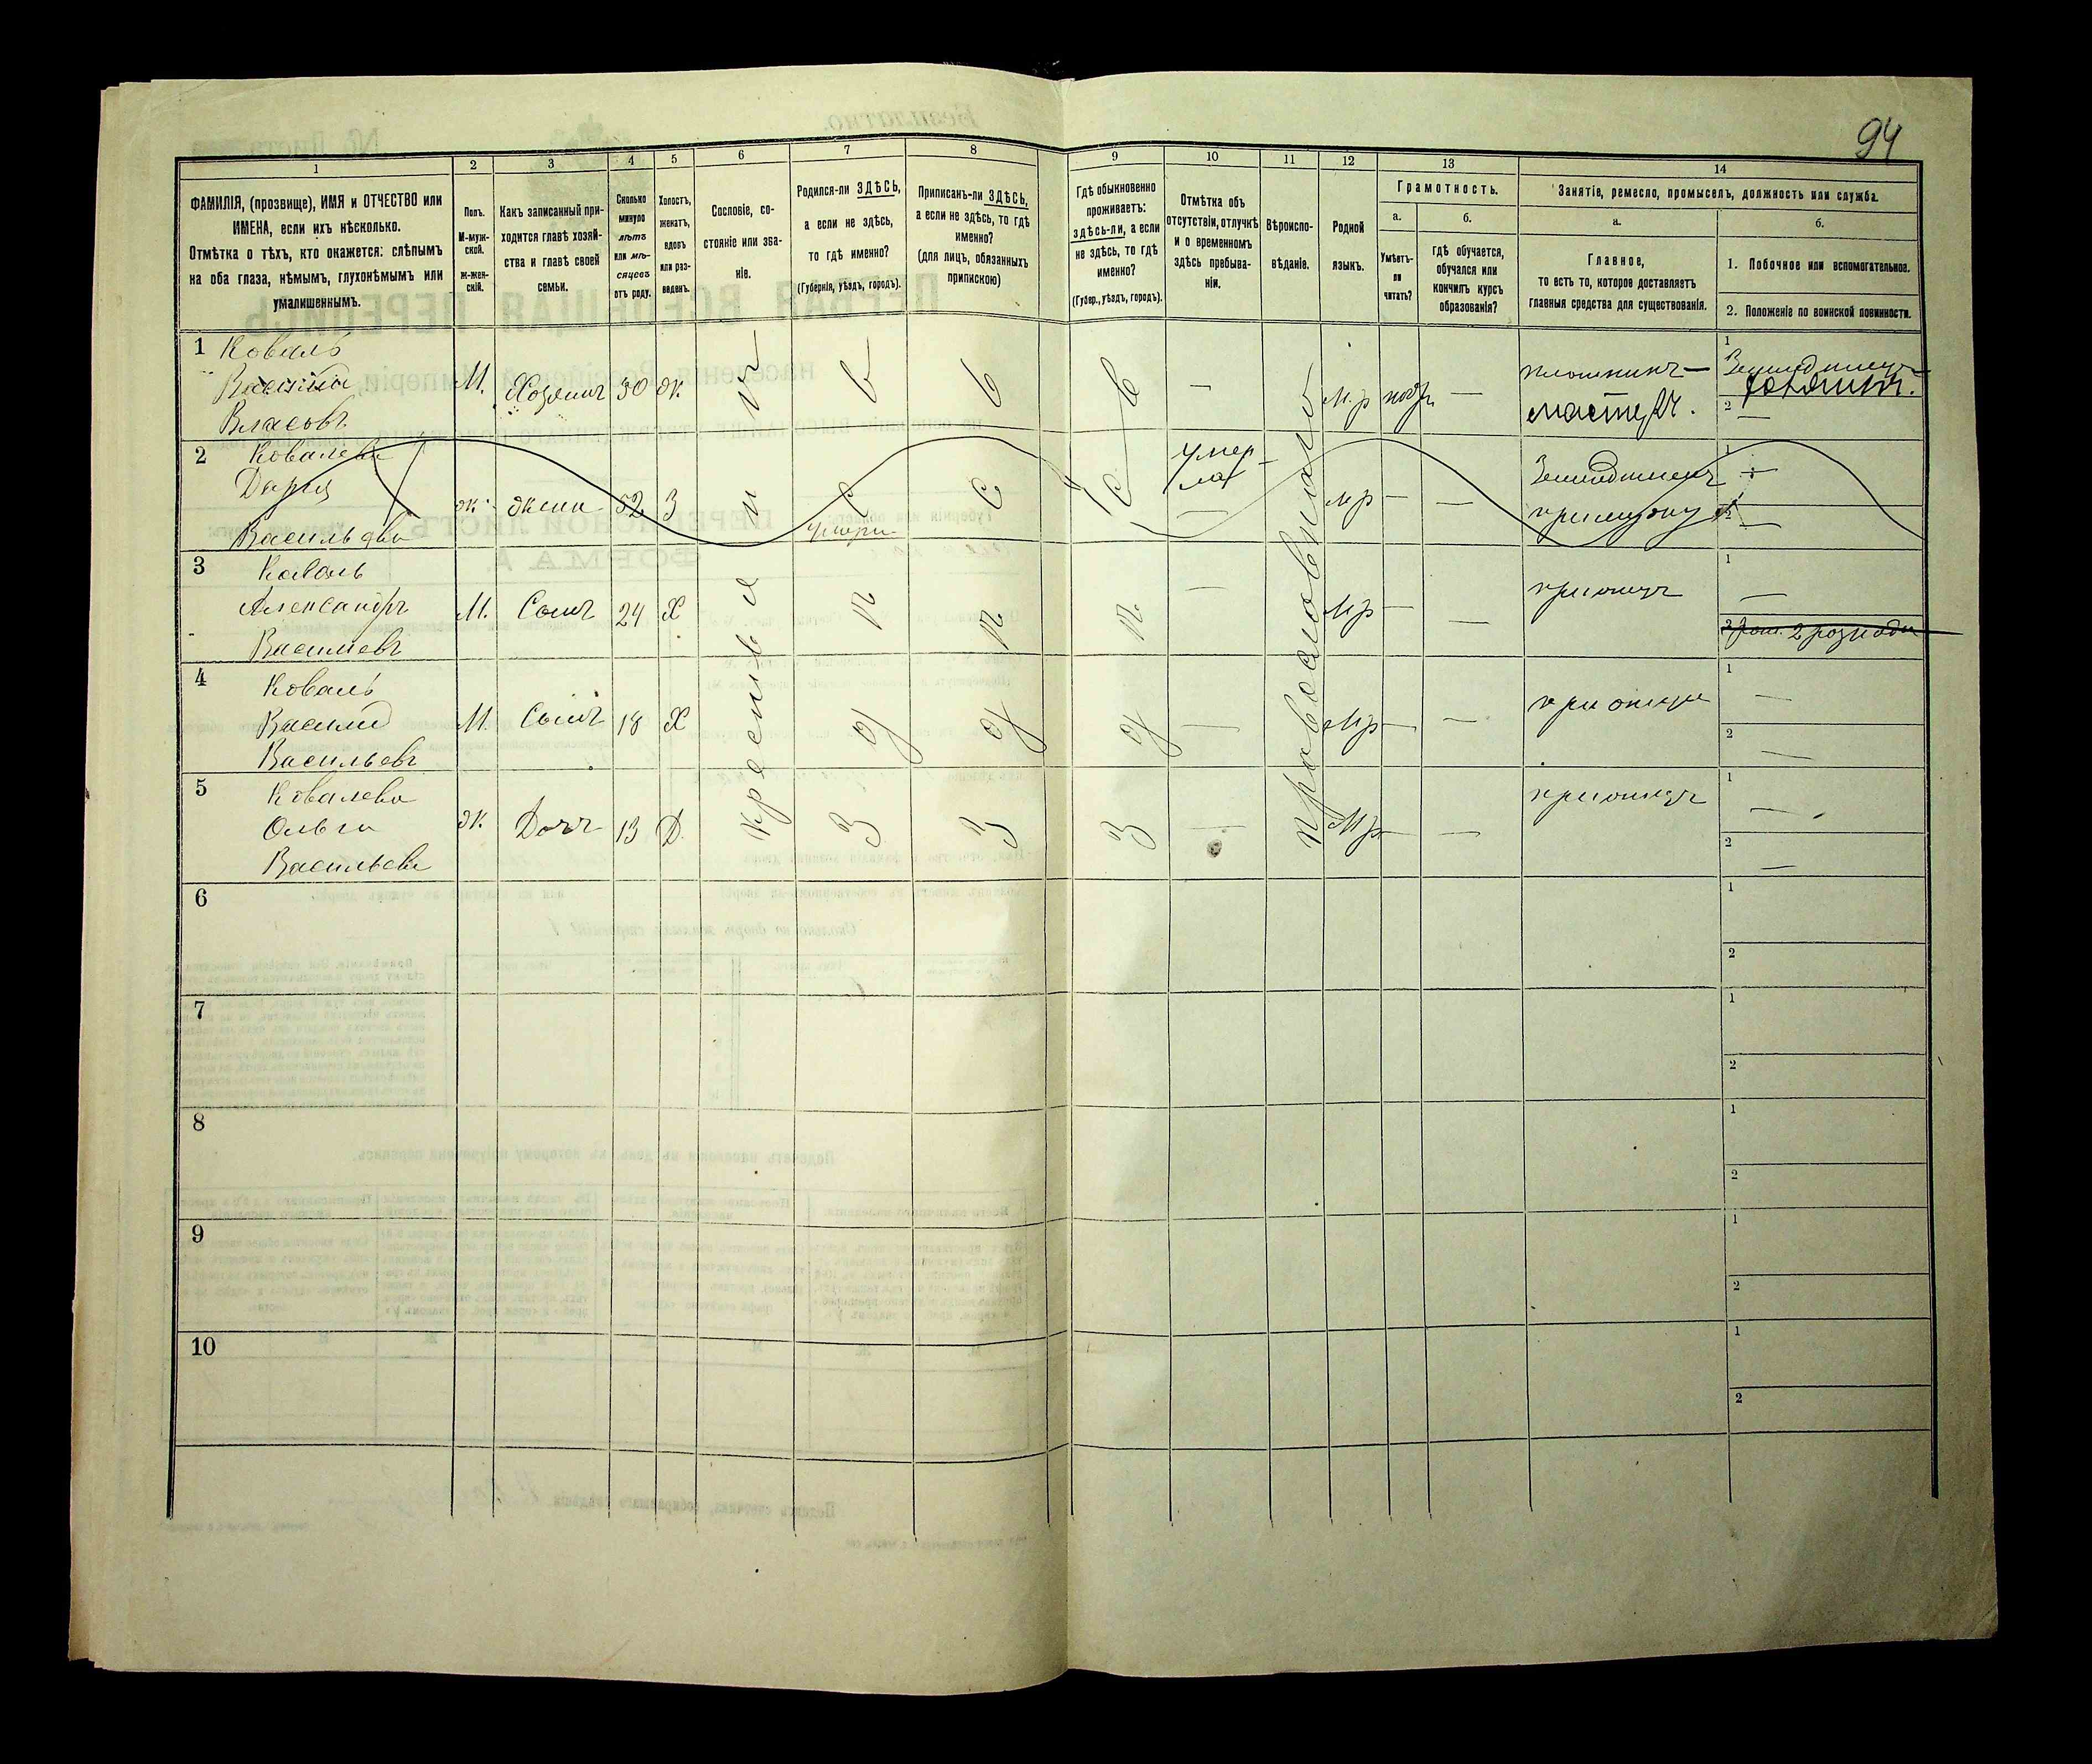 94
1 2 3 4 5 6 7 8 9 10 11 12 13 14
ФАМИЛІЯ, (прозвище), ИМЯ и ОТЧЕСТВО или
ИМЕНА, если ихъ нѣсколько.
Отмѣтка о тѣхъ, кто окажется: слѣпымъ
на оба глаза, нѣмымъ, глухонѣмымъ или
умалишеннымъ.
Полъ.
М-муж-
ской.
ж-жен-
скій.
Какъ записанный при-
ходится главѣ хозяй-
ства и главѣ своей
семьи.
Сколько
минуло
лѣтъ
или мѣ-
сяцевъ
отъ роду.
Холостъ,
женатъ,
вдовъ
или раз-
веденъ.
Сословіе, со-
стояніе или зва-
ніе.
Родился-ли ЗДѢСЬ,
а если не здѣсь,
то гдѣ именно?
(Губернія, уѣздъ, городъ).
Приписанъ-ли ЗДѢСЬ,
а если не здѣсь, то гдѣ
именно?
(для лицъ, обязанныхъ
припискою)
Гдѣ обыкновенно
проживаетъ:
здѣсь-ли, а если
не здѣсь, то гдѣ
именно?
(Губер., уѣздъ, городъ).
Отмѣтка объ
отсутствіи, отлучкѣ
и о временномъ
здѣсь пребыва-
ніи.
Вѣроиспо-
вѣданіе.
Родной
языкъ.
Грамотность.
а.
Умѣетъ-
ли
читать?
б.
Гдѣ обучается,
обучался или
кончилъ курсъ
образованія?
Занятіе, ремесло, промыселъ, должность или служба.
а.
Главное,
то есть то, которое доставляетъ
главныя средства для существованія.
б.
1. Побочное или вспомогательное.
2. Положеніе по воинской повинности.
1 Коваль
Василій
Власовъ
М. Хозяинъ 50 ж.
М.р
плотникъ —
мастеръ.
1
2 —
2 Ковалева
Дарья
Васильева
ж. жена 52 З
Умер-
ла
Умерла
мр — —
1
2 —
3 Коваль
Александръ
Василіевъ
М. Сынъ 24 Х
— Мр — —
при отцѣ
1 —
2
4 Коваль
Василій
Васильевъ
М. Сынъ 18 Х
— Мр — —
при отцѣ
1 —
2 —
5 Ковалева
Ольга
Васильева
ж. Дочь 13 Д.
— Мр — —
при отцѣ
1 —
2 —
крестьяне
здѣсь
здѣсь
здѣсь
православная
6 1
2
7 1
2
8 1
2
9 1
2
10 1
2